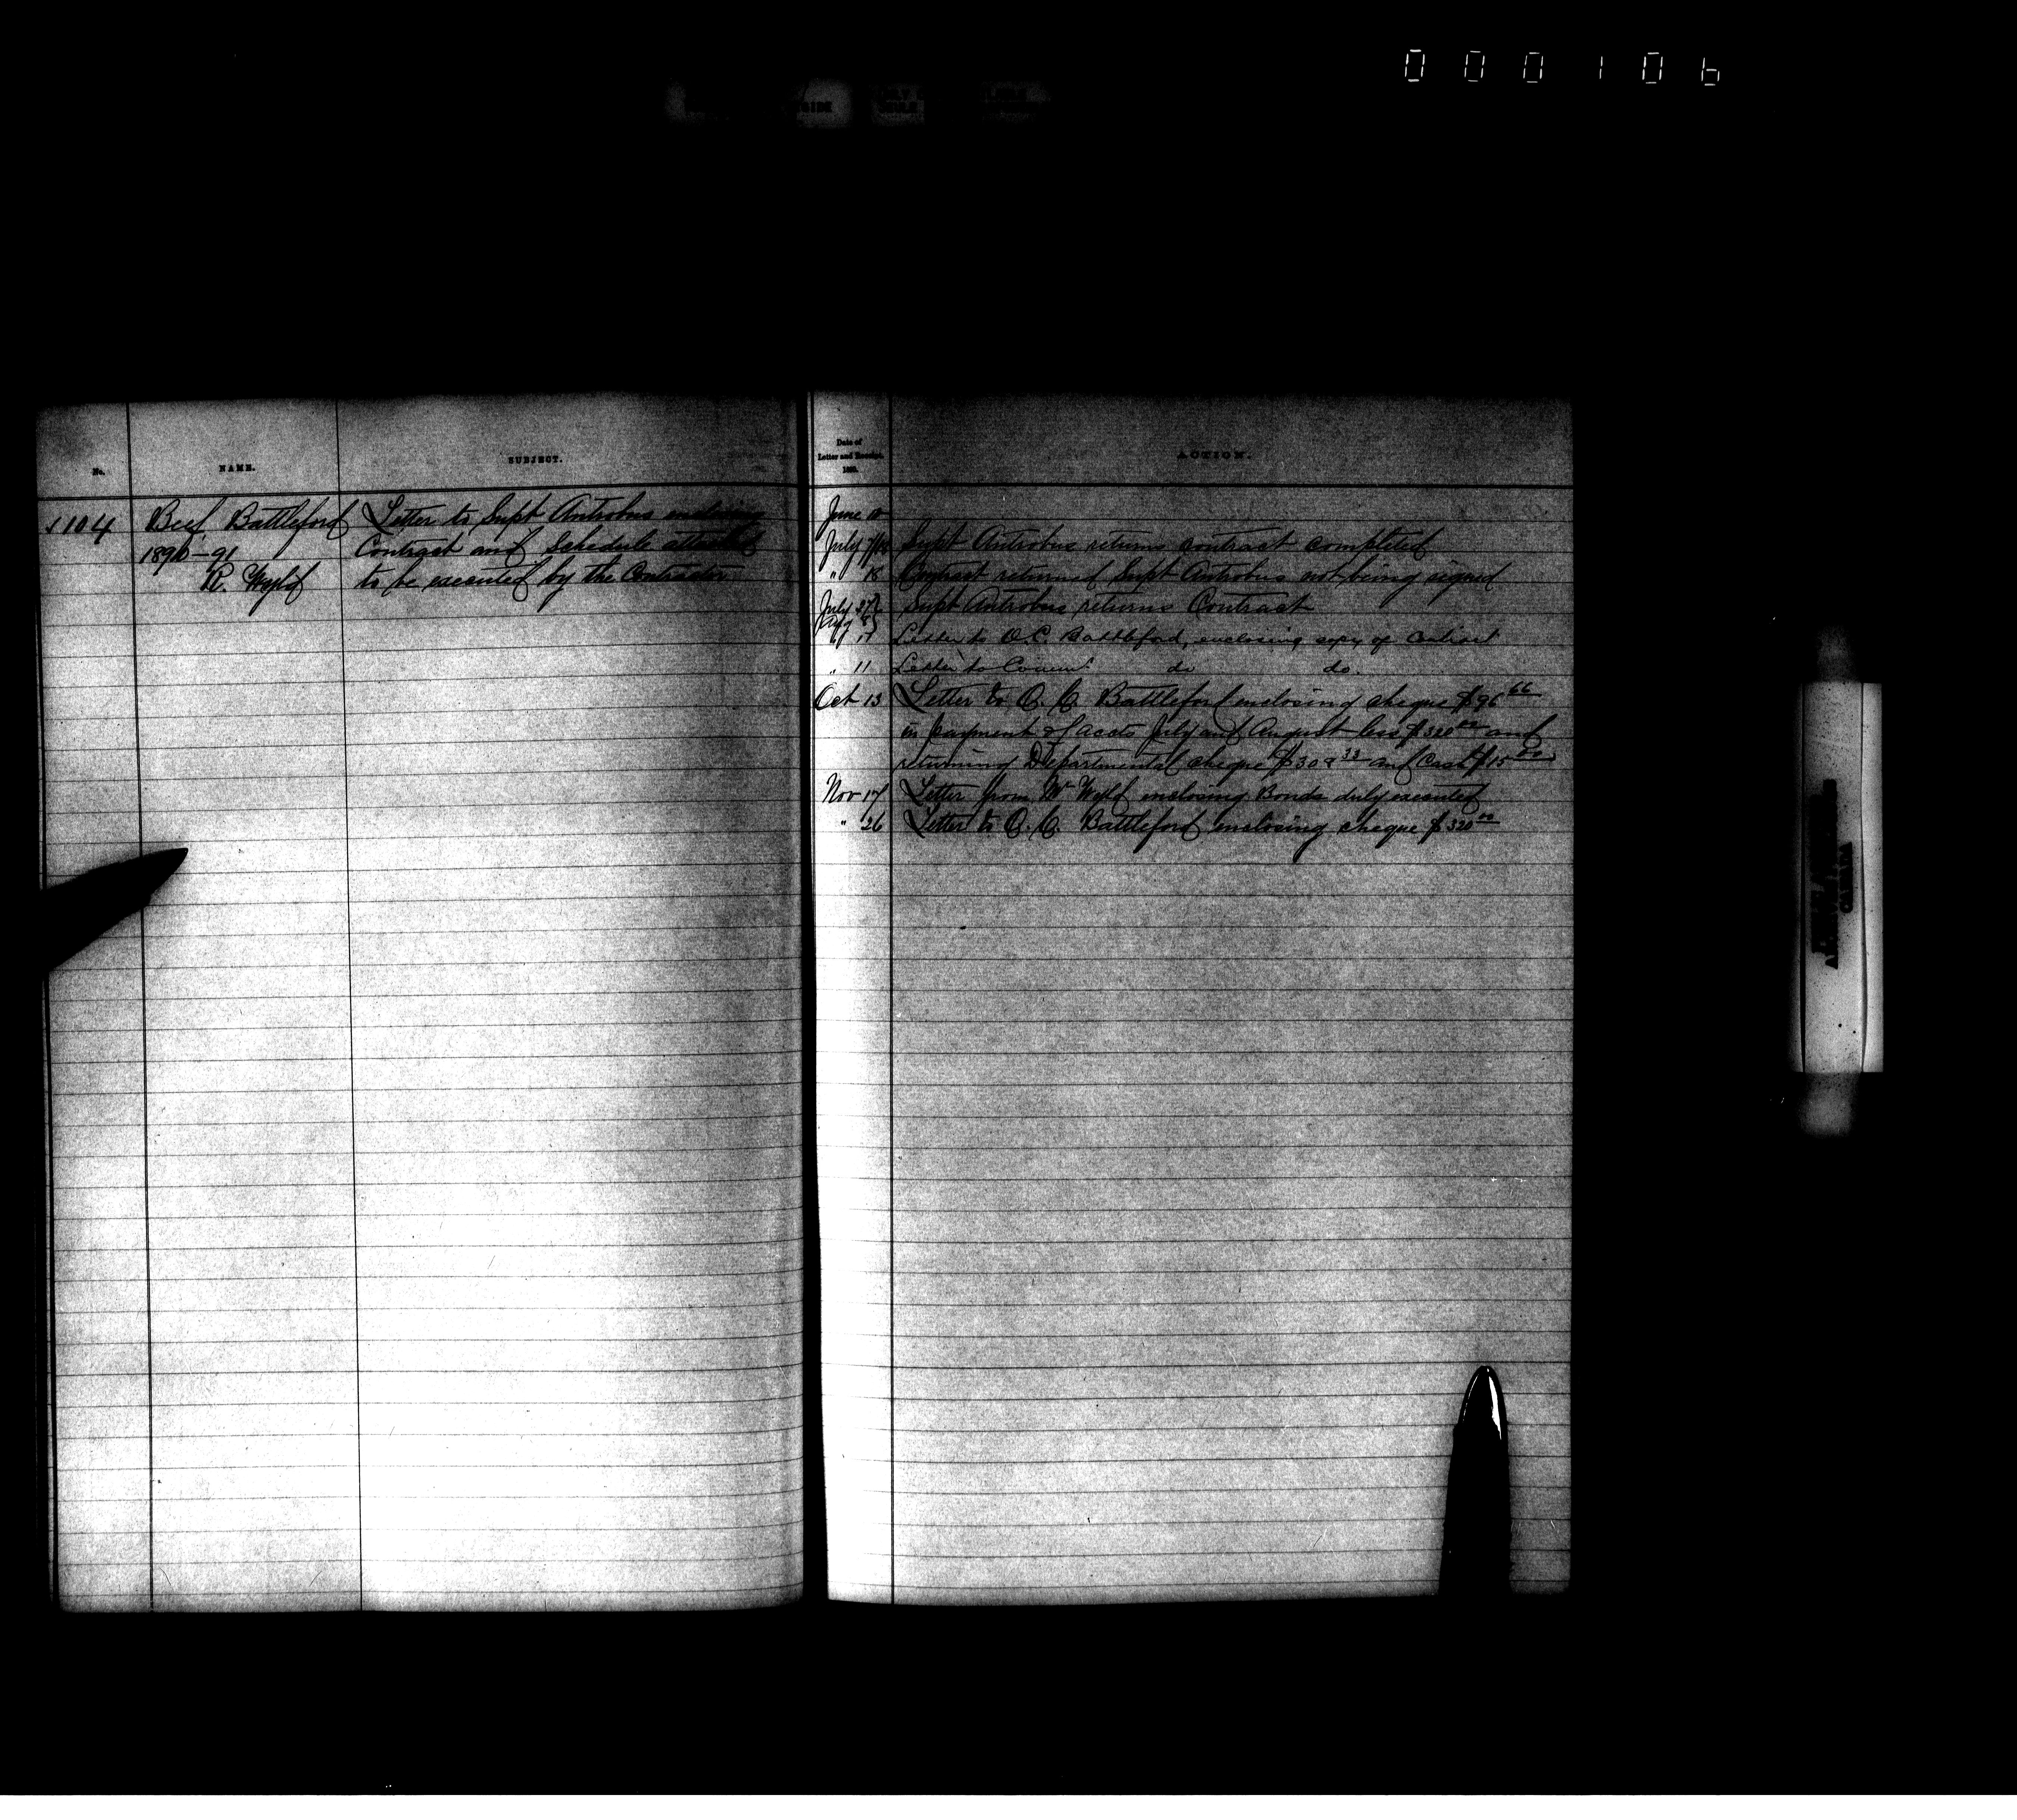 000106
No.
NAME.
SUBJECT.
1104
Beef, Battleford
1890-91
R. Wyld
Letter to Supt Antrobus enclosing
Contract and Schedule attached
to be executed by the Contractor
Date of
Letter and
ACTION.
June
July Supt Antrobus returns contract completed
" 18 Contract returned Supt Antrobus not being signed
July 27 Supt Antrobus returns Contract
Aug 8
" 11 Letter to O.C. Battleford, enclosing copy of Contract
" 11 Letter to Commr. do do.
Oct 13 Letter to O. C. Battleford enclosing cheque $96 66
in payment of accts July and August less $320 00 and
returning Departmental cheque $308 33 and Cash $15 00
Nov 17 Letter from Mr Wyld enclosing Bonds duly executed
" 26 Letter to O. C. Battleford enclosing cheque $320 00